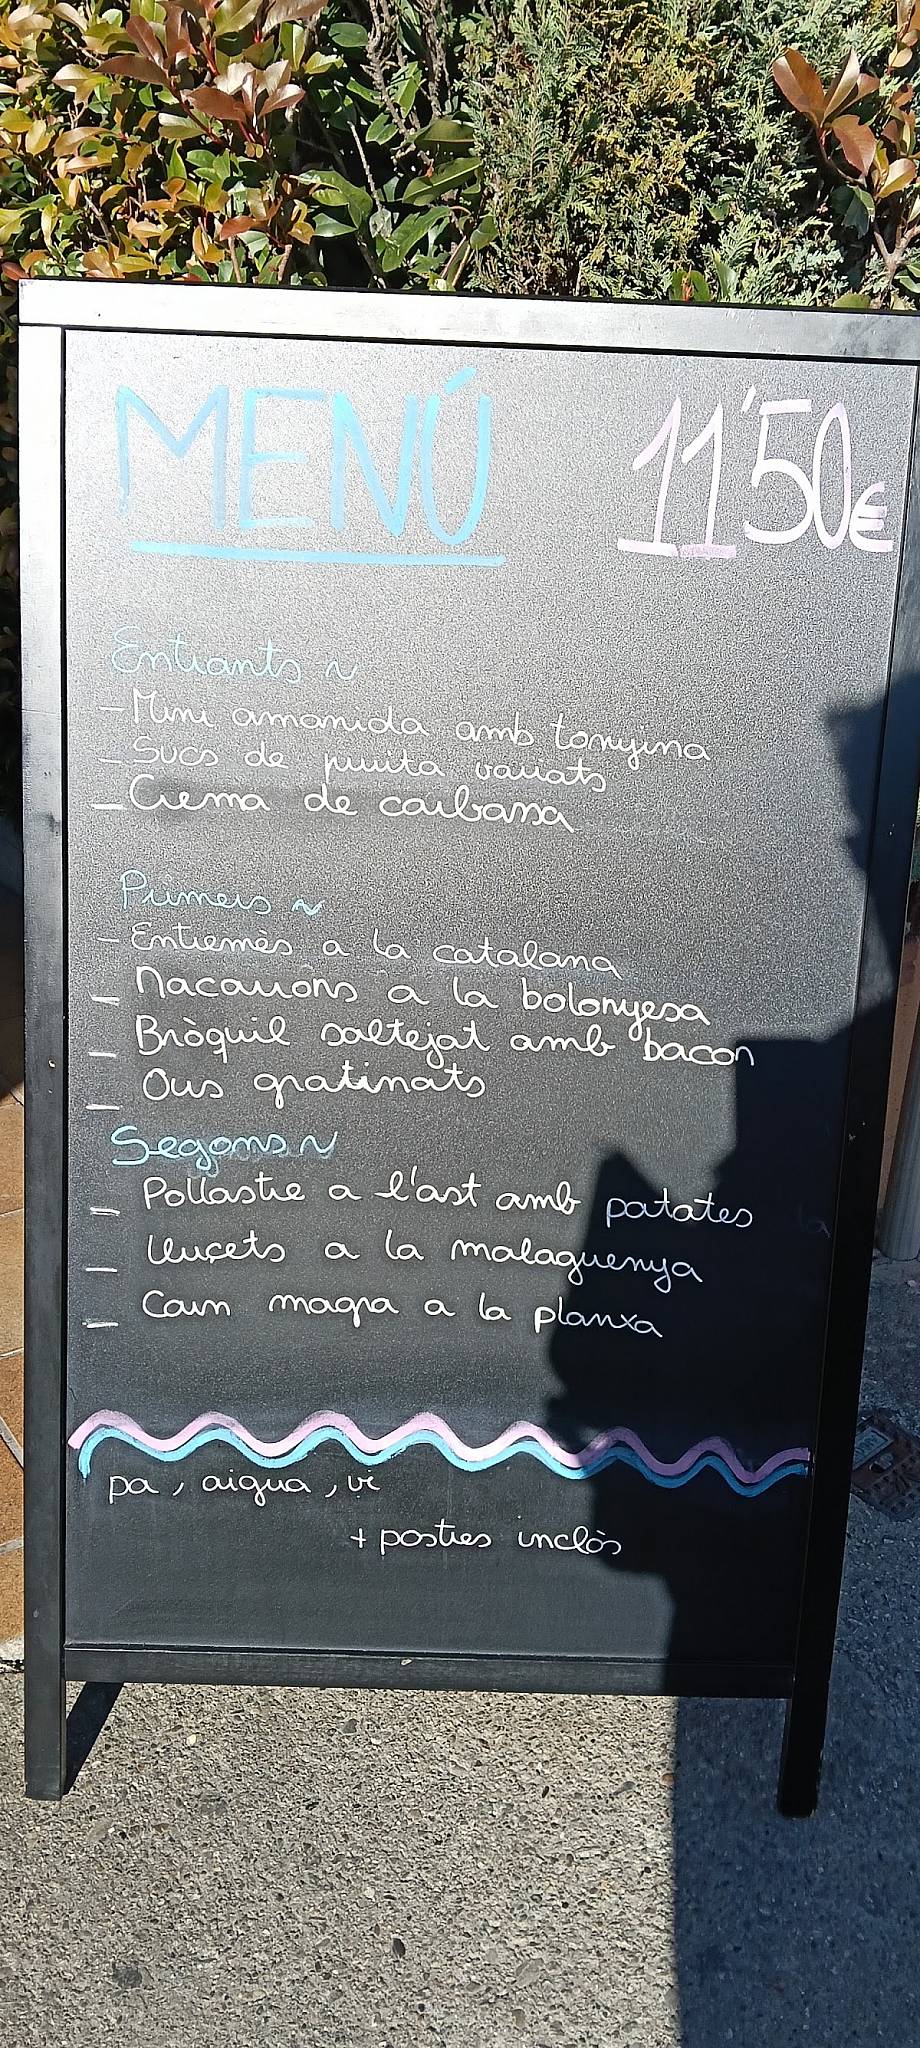 MENÚ 11'50€
Entrants ~
- Mini amanida amb tonyina
- Sucs de fruita variats
- Crema de carbassa
Primers ~
- Entremès a la catalana
- Macarrons a la bolonyesa
- Bròquil saltejat amb bacon
- Ous gratinats
Segons ~
- Pollastre a l'ast amb patates
- Lluçets a la malaguenya
- Carn magra a la planxa
pa, aigua, vi
+ postres inclòs